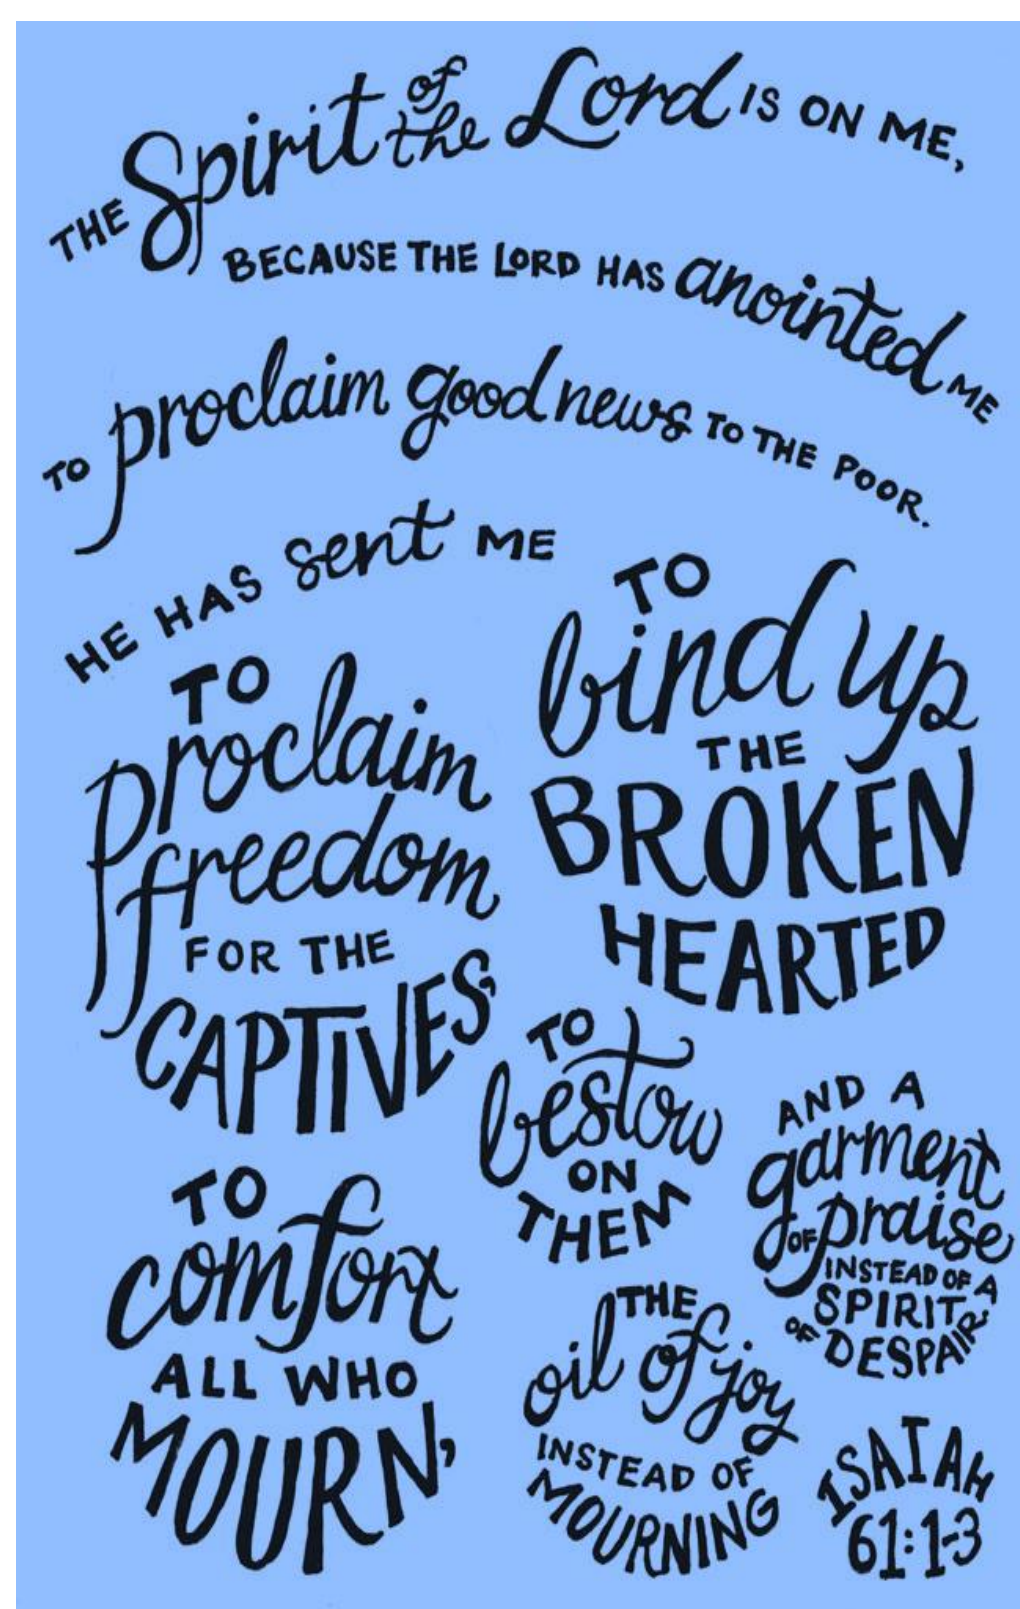 THE Spirit of the Lord IS ON ME,
BECAUSE THE LORD HAS anointed ME
TO proclaim good news TO THE POOR.
HE HAS sent ME
TO
bind up
THE
BROKEN
HEARTED
TO
proclaim
freedom
FOR THE
CAPTIVES
TO
comfort
ALL WHO
MOURN,
TO
bestow
ON
THEM
THE
oil of joy
INSTEAD OF
MOURNING
AND A
garment
OF praise
INSTEAD OF A
SPIRIT
OF DESPAIR,
ISAIAH
61:1-3